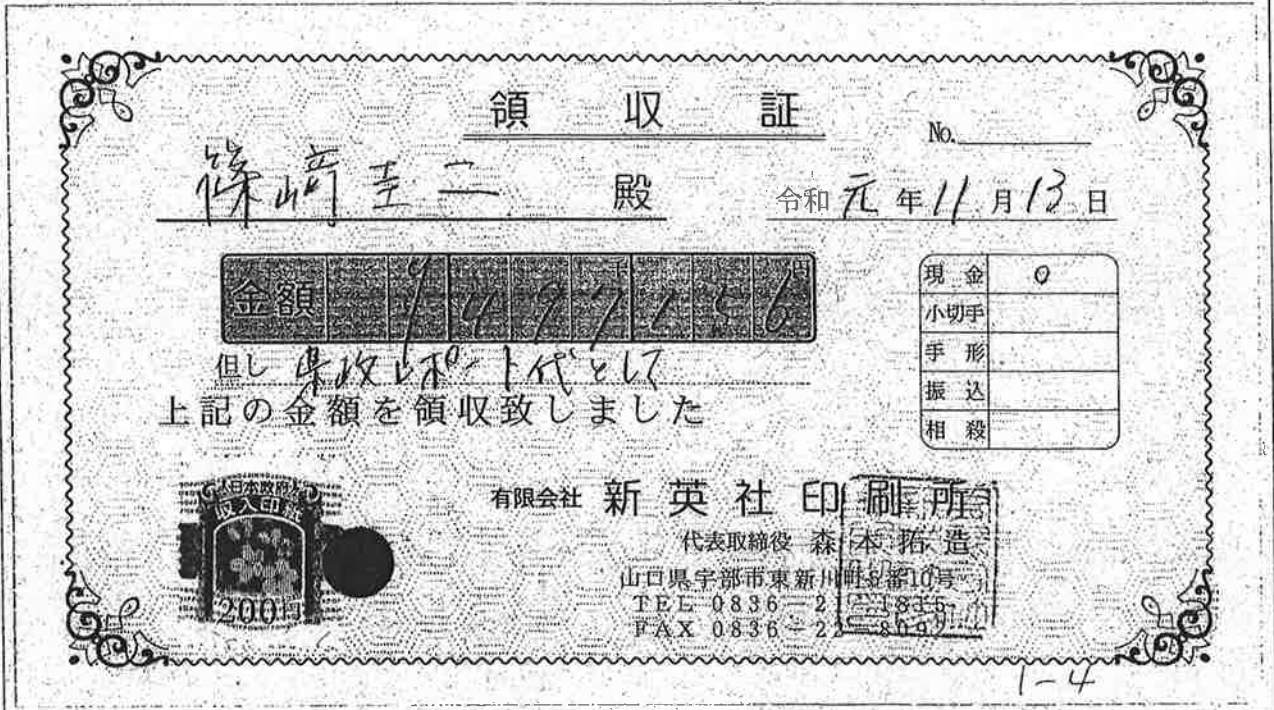 領収証
No.
篠﨑圭二 殿
令和元年11月13日
金額
千 円
但し 県政レポート代として
上記の金額を領収致しました
現金 0
小切手
手形
振込
相殺
日本政府
収入印紙
200円
有限会社 新英社印刷所
代表取締役 森本拓造
山口県宇部市東新川町
TEL 0836-2
FAX 0836-22
1-4